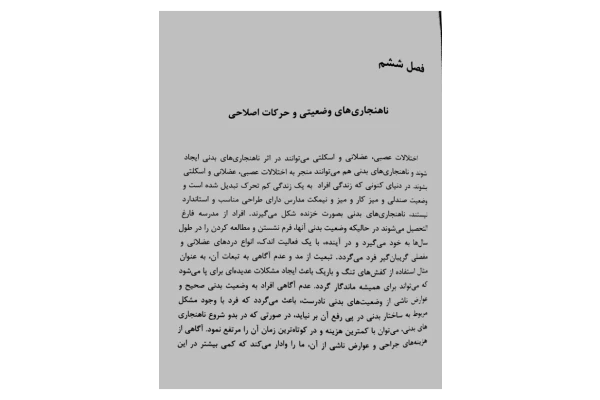 فصل ششم
ناهنجاری‌های وضعیتی و حرکات اصلاحی
اختلالات عصبی، عضلانی و اسکلتی می‌توانند در اثر ناهنجاری‌های بدنی ایجاد
شوند و ناهنجاری‌های بدنی هم می‌توانند منجر به اختلالات عصبی، عضلانی و اسکلتی
بشوند. در دنیای کنونی که زندگی افراد به یک زندگی کم تحرک تبدیل شده است و
وضعیت صندلی و میز کار و میز و نیمکت مدارس دارای طراحی مناسب و استاندارد
نیستند، ناهنجاری‌های بدنی بصورت خزنده شکل می‌گیرند. افراد از مدرسه فارغ
التحصیل می‌شوند در حالیکه وضعیت بدنی آنها، فرم نشستن و مطالعه کردن را در طول
سال‌ها به خود می‌گیرد و در آینده، با یک فعالیت اندک، انواع دردهای عضلانی و
مفصلی گریبان‌گیر فرد می‌گردد. تبعیت از مد و عدم آگاهی به تبعات آن، به عنوان
مثال استفاده از کفش‌های تنگ و باریک باعث ایجاد مشکلات عدیده‌ای برای پا می‌شود
که می‌تواند برای همیشه ماندگار گردد. عدم آگاهی افراد به وضعیت بدنی صحیح و
عوارض ناشی از وضعیت‌های بدنی نادرست، باعث می‌گردد که فرد با وجود مشکل
مربوط به ساختار بدنی در پی رفع آن بر نیاید، در صورتی که در بدو شروع ناهنجاری
های بدنی، می‌توان با کمترین هزینه و در کوتاه‌ترین زمان آن را مرتفع نمود. آگاهی از
هزینه‌های جراحی و عوارض ناشی از آن، ما را وادار می‌کند که کمی بیشتر در این